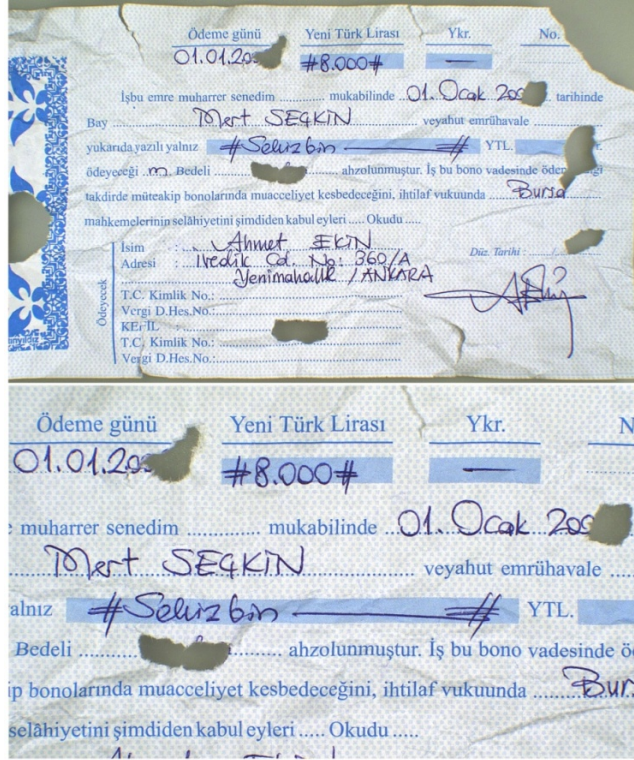 Ödeme günü Yeni Türk Lirası Ykr. No.
01.01.20 #8.000# —
İşbu emre muharrer senedim ........ mukabilinde ..01. Ocak 200 tarihinde
Bay ........ Mert SEÇKİN ........ veyahut emrühavale ........
yukarıda yazılı yalnız #Sekizbin ——— # YTL.
ödeyeceğim. Bedeli ........ ahzolunmuştur. İş bu bono vadesinde öden
takdirde müteakip bonolarında muacceliyet kesbedeceğini, ihtilaf vukuunda ..Bursa..
mahkemelerinin selâhiyetini şimdiden kabul eyleri .... Okudu .....
Ödeyecek
İsim : Ahmet EKİN
Düz. Tarihi :
Adresi : İvedik Cd. No: 360/A
Yenimahalle / ANKARA
T.C. Kimlik No.:
Vergi D.Hes.No.:
KEFİL
T.C. Kimlik No.:
Vergi D.Hes.No.:
Ödeme günü Yeni Türk Lirası Ykr. N
01.01.20 #8.000# —
muharrer senedim ............ mukabilinde ..01. Ocak 200
Mert SEÇKİN ........ veyahut emrühavale ....
alnız #Sekizbin ——— # YTL.
Bedeli ........ ahzolunmuştur. İş bu bono vadesinde ö
ip bonolarında muacceliyet kesbedeceğini, ihtilaf vukuunda ........Bur
selâhiyetini şimdiden kabul eyleri ..... Okudu .....